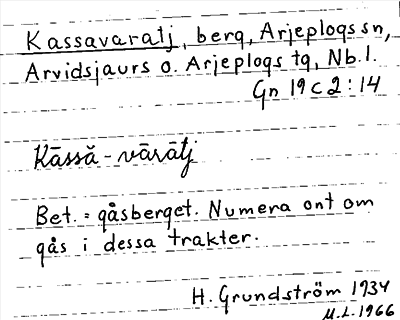 Kassavaratj, berg, Arjeplogs sn,
Arvidsjaurs o. Arjeplogs tg, Nb.l.
Gn 19 c 2 : 14
Kāssă - vārātj
Bet. = gåsberget. Numera ont om
gås i dessa trakter.
H. Grundström 1934
M.L. 1966